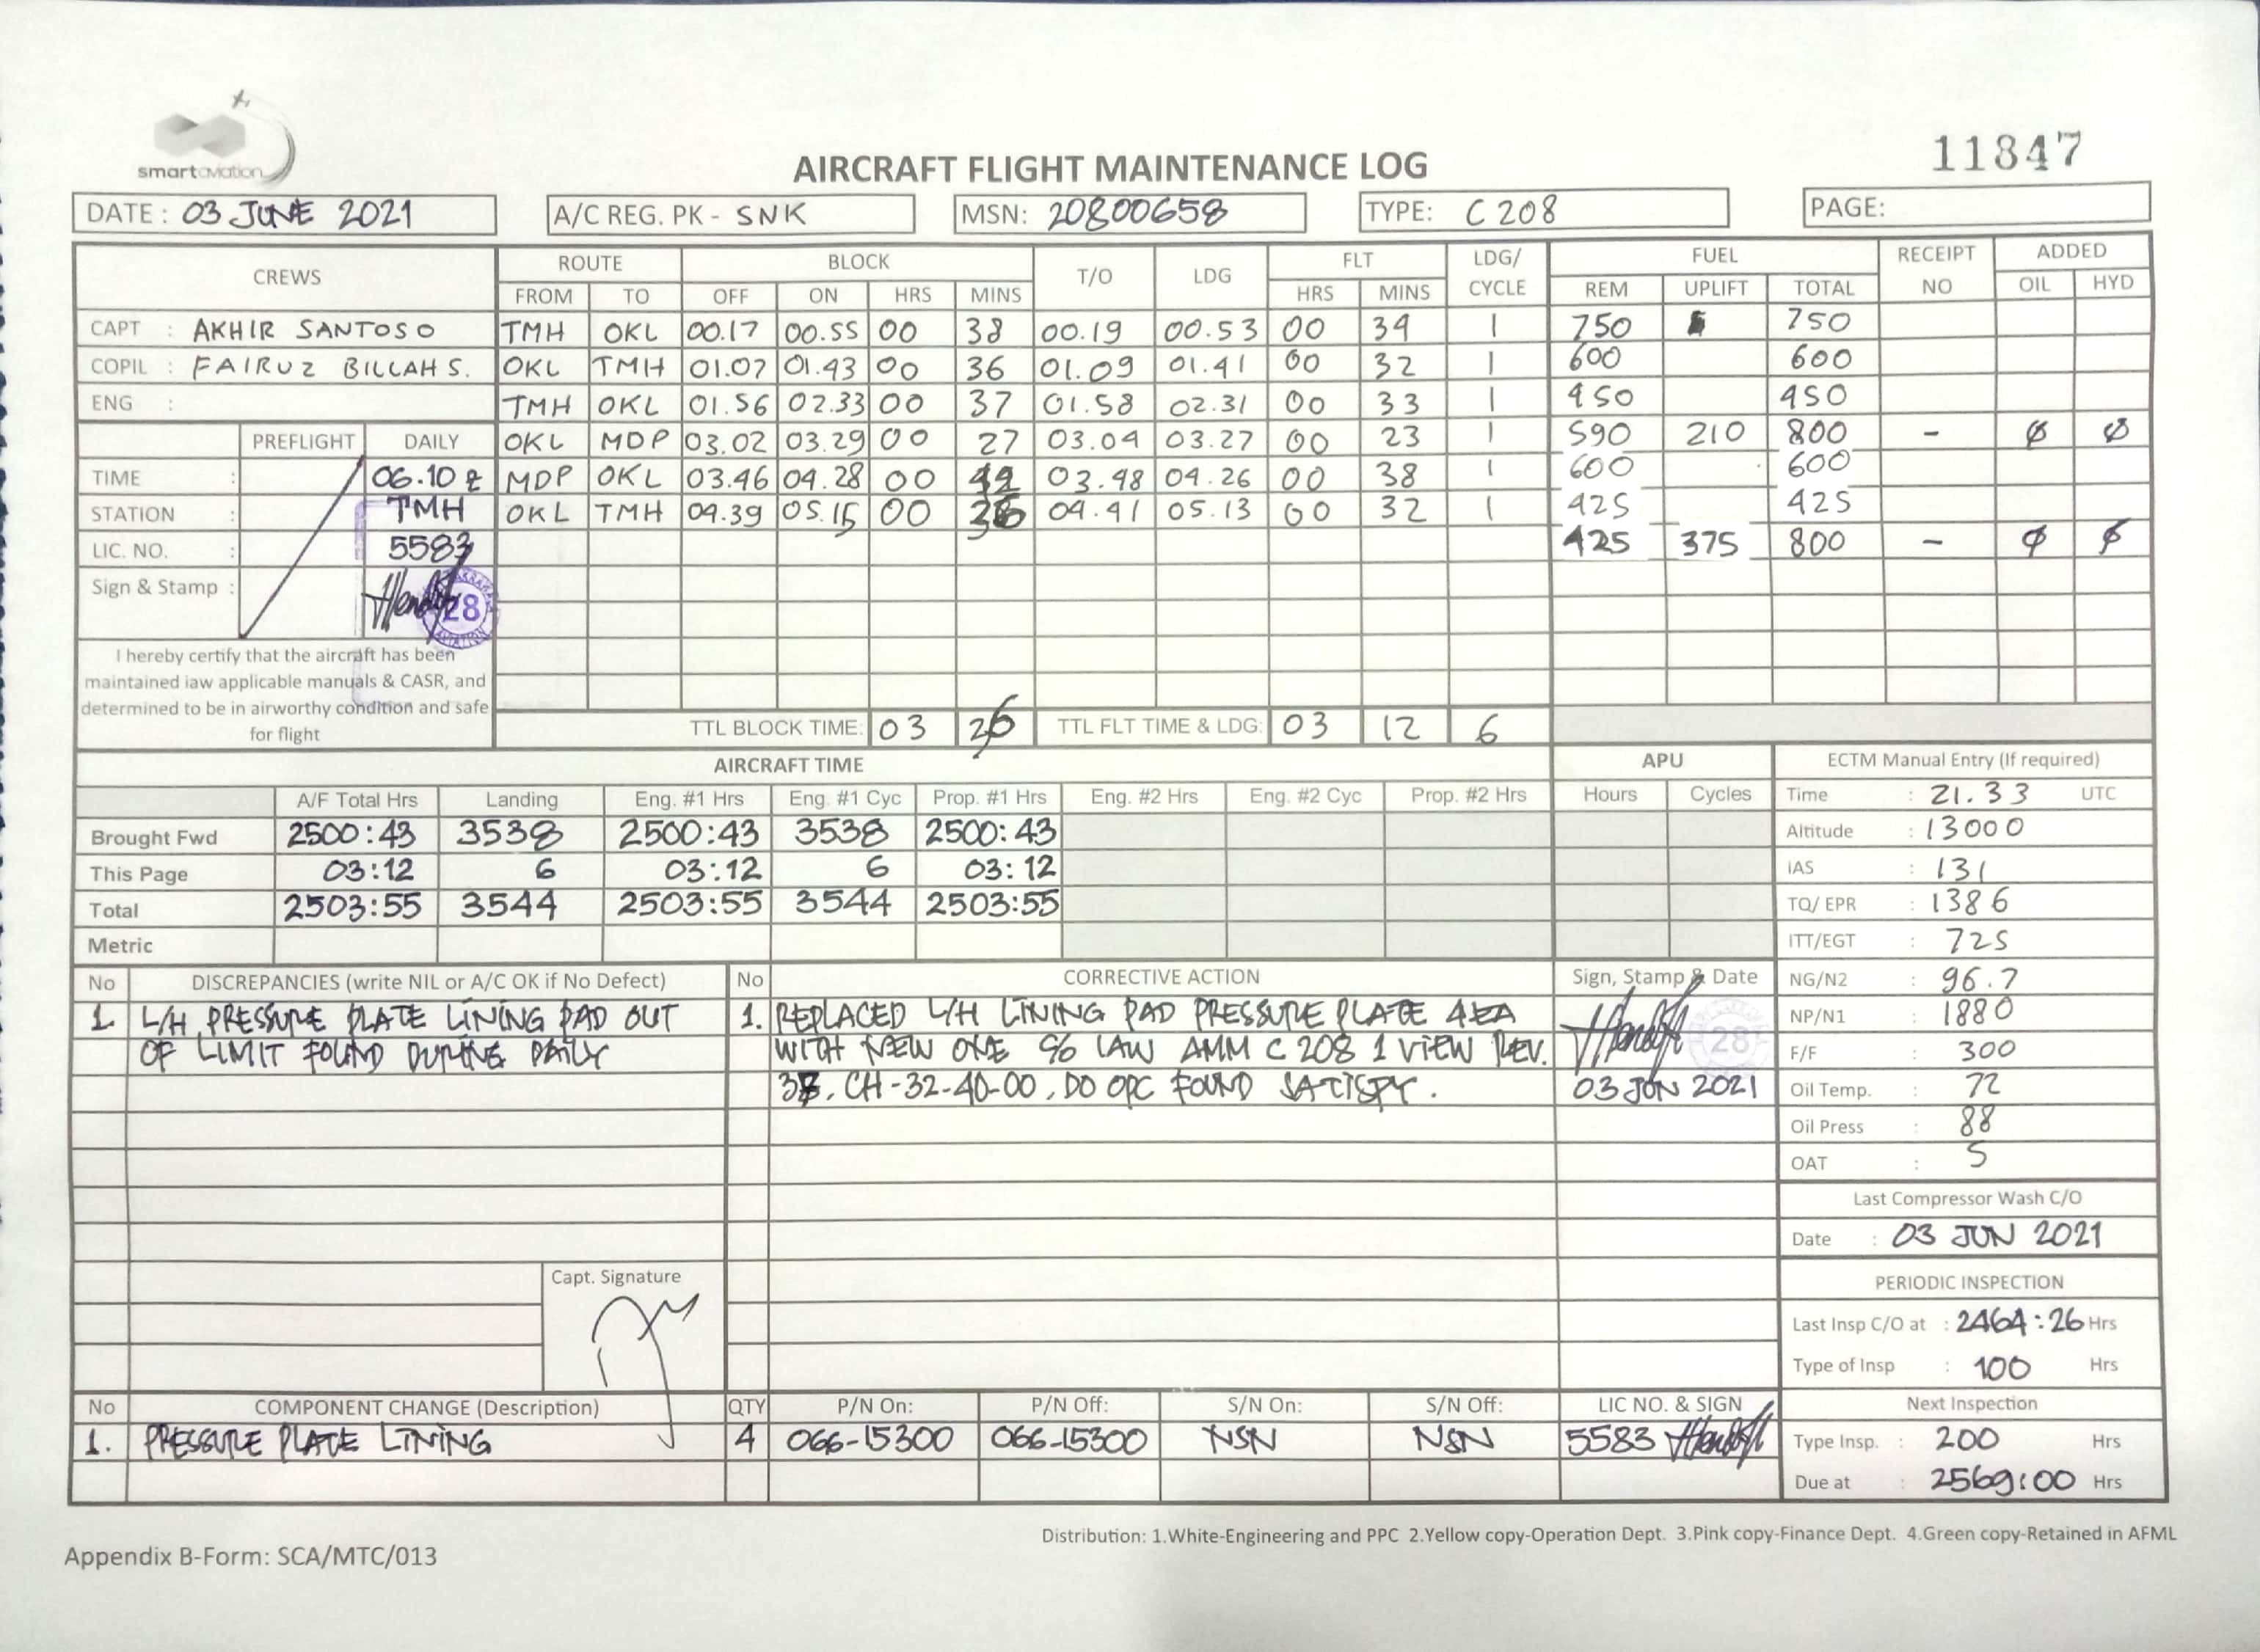 smartaviation
11847
AIRCRAFT FLIGHT MAINTENANCE LOG
DATE : 03 JUNE 2021 A/C REG. PK - SNK MSN: 20800658 TYPE: C 208 PAGE:
CREWS ROUTE BLOCK T/O LDG FLT LDG/ CYCLE FUEL RECEIPT NO ADDED
FROM TO OFF ON HRS MINS HRS MINS REM UPLIFT TOTAL OIL HYD
CAPT : AKHIR SANTOSO TMH OKL 00.17 00.55 00 38 00.19 00.53 00 34 1 750 750
COPIL : FAIRUZ BILLAH S. OKL TMH 01.07 01.43 00 36 01.09 01.41 00 32 1 600 600
ENG : TMH OKL 01.56 02.33 00 37 01.58 02.31 00 33 1 450 450
PREFLIGHT DAILY OKL MDP 03.02 03.29 00 27 03.04 03.27 00 23 1 590 210 800 - Ø Ø
TIME : 06.10 z MDP OKL 03.46 04.28 00 42 03.48 04.26 00 38 1 600 600
STATION : TMH OKL TMH 04.39 05.15 00 36 04.41 05.13 00 32 1 425 425
LIC. NO. : 5583 425 375 800 - Ø Ø
Sign & Stamp : 28
I hereby certify that the aircraft has been
maintained iaw applicable manuals & CASR, and
determined to be in airworthy condition and safe
for flight
TTL BLOCK TIME: 03 36 TTL FLT TIME & LDG: 03 12 6
AIRCRAFT TIME APU ECTM Manual Entry (If required)
A/F Total Hrs Landing Eng. #1 Hrs Eng. #1 Cyc Prop. #1 Hrs Eng. #2 Hrs Eng. #2 Cyc Prop. #2 Hrs Hours Cycles Time : 21.33 UTC
Brought Fwd 2500:43 3538 2500:43 3538 2500:43 Altitude : 13000
This Page 03:12 6 03:12 6 03:12 IAS : 131
Total 2503:55 3544 2503:55 3544 2503:55 TQ/ EPR : 1386
Metric ITT/EGT : 725
No DISCREPANCIES (write NIL or A/C OK if No Defect) No CORRECTIVE ACTION Sign, Stamp & Date NG/N2 : 96.7
1. L/H PRESSURE PLATE LINING PAD OUT 1. REPLACED L/H LINING PAD PRESSURE PLATE 4EA NP/N1 : 1880
OF LIMIT FOUND DURING DAILY WITH NEW ONE C/O IAW AMM C 208 1 VIEW REV. 28 F/F : 300
CH-32-40-00, DO OPC FOUND SATISFY. 03 JUN 2021 Oil Temp. : 72
Oil Press : 88
OAT : 5
Last Compressor Wash C/O
Date : 03 JUN 2021
Capt. Signature
PERIODIC INSPECTION
Last Insp C/O at : 2464:26 Hrs
Type of Insp : 100 Hrs
No COMPONENT CHANGE (Description) QTY P/N On: P/N Off: S/N On: S/N Off: LIC NO. & SIGN Next Inspection
1. PRESSURE PLATE LINING 4 066-15300 066-15300 NSN NSN 5583 Type Insp. : 200 Hrs
Due at : 2569:00 Hrs
Distribution: 1.White-Engineering and PPC 2.Yellow copy-Operation Dept. 3.Pink copy-Finance Dept. 4.Green copy-Retained in AFML
Appendix B-Form: SCA/MTC/013